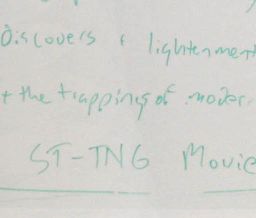 Discovers & lightenment
+ the trappings of moder
ST-TNG Movie